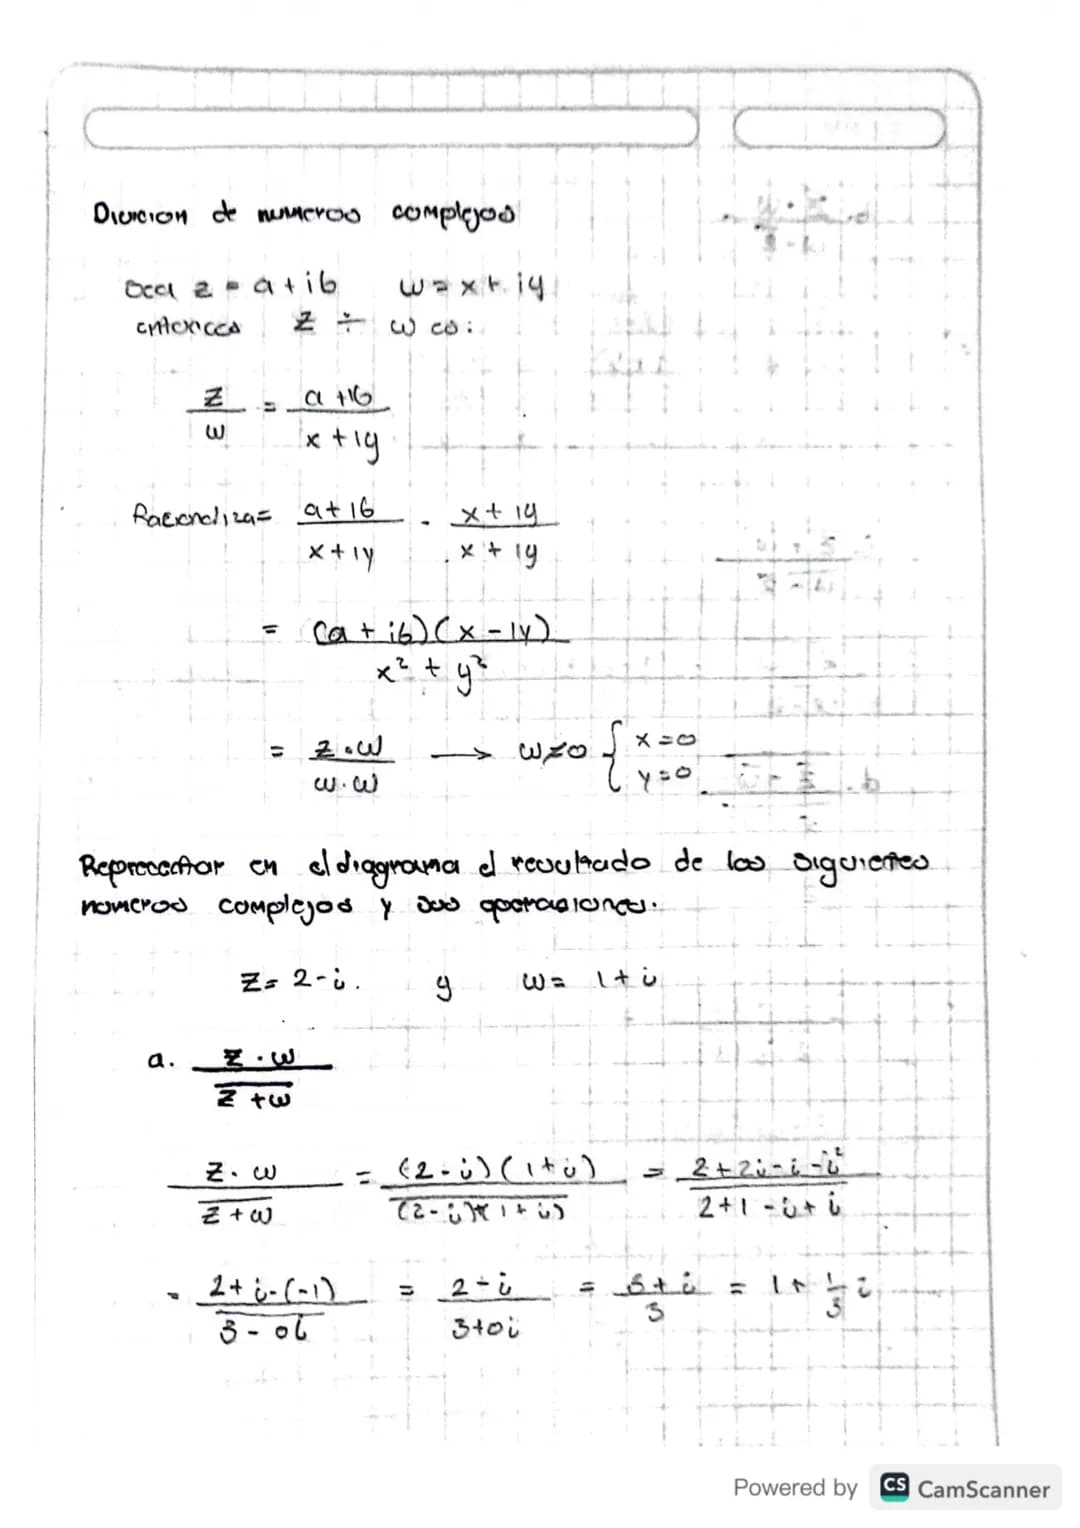 Division de numeros complejos
Sea z = a + ib    w = x + iy
entonces z ÷ w es:
z/w = (a + ib)/(x + iy)
Racionaliza = (a + ib)/(x + iy) · (x + iy)/(x + iy)
= (a + ib)(x - iy)/(x² + y²)
= z·w/w·w → w≠0 { x = 0 y = 0
Representar en el diagrama el resultado de los siguientes
numeros complejos y sus operaciones.
z = 2 - i.    y    w = 1 + i
a. z·w/\overline{z + w}
z·w/\overline{z + w} = (2 - i)(1 + i)/\overline{(2 - i)+(1 + i)} = 2 + 2i - i - i²/\overline{2 + 1 - i + i}
= 2 + i - (-1)/\overline{3 - 0i} = 2 + i/3 + 0i = 3 + i/3 = 1 + 1/3 i
Powered by CS CamScanner